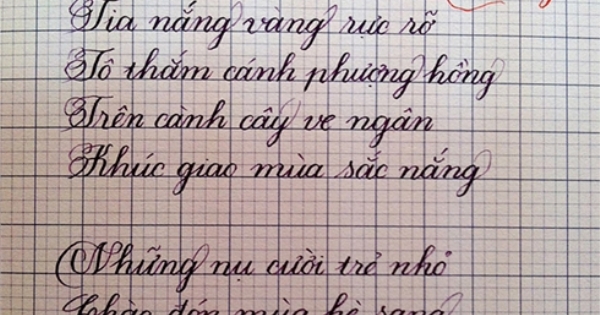 Tia nắng vàng rực rỡ
Tô thắm cánh phượng hồng
Trên cành cây ve ngân
Khúc giao mùa sắc nắng
Những nụ cười trẻ nhỏ
Chào đón mùa hè sang